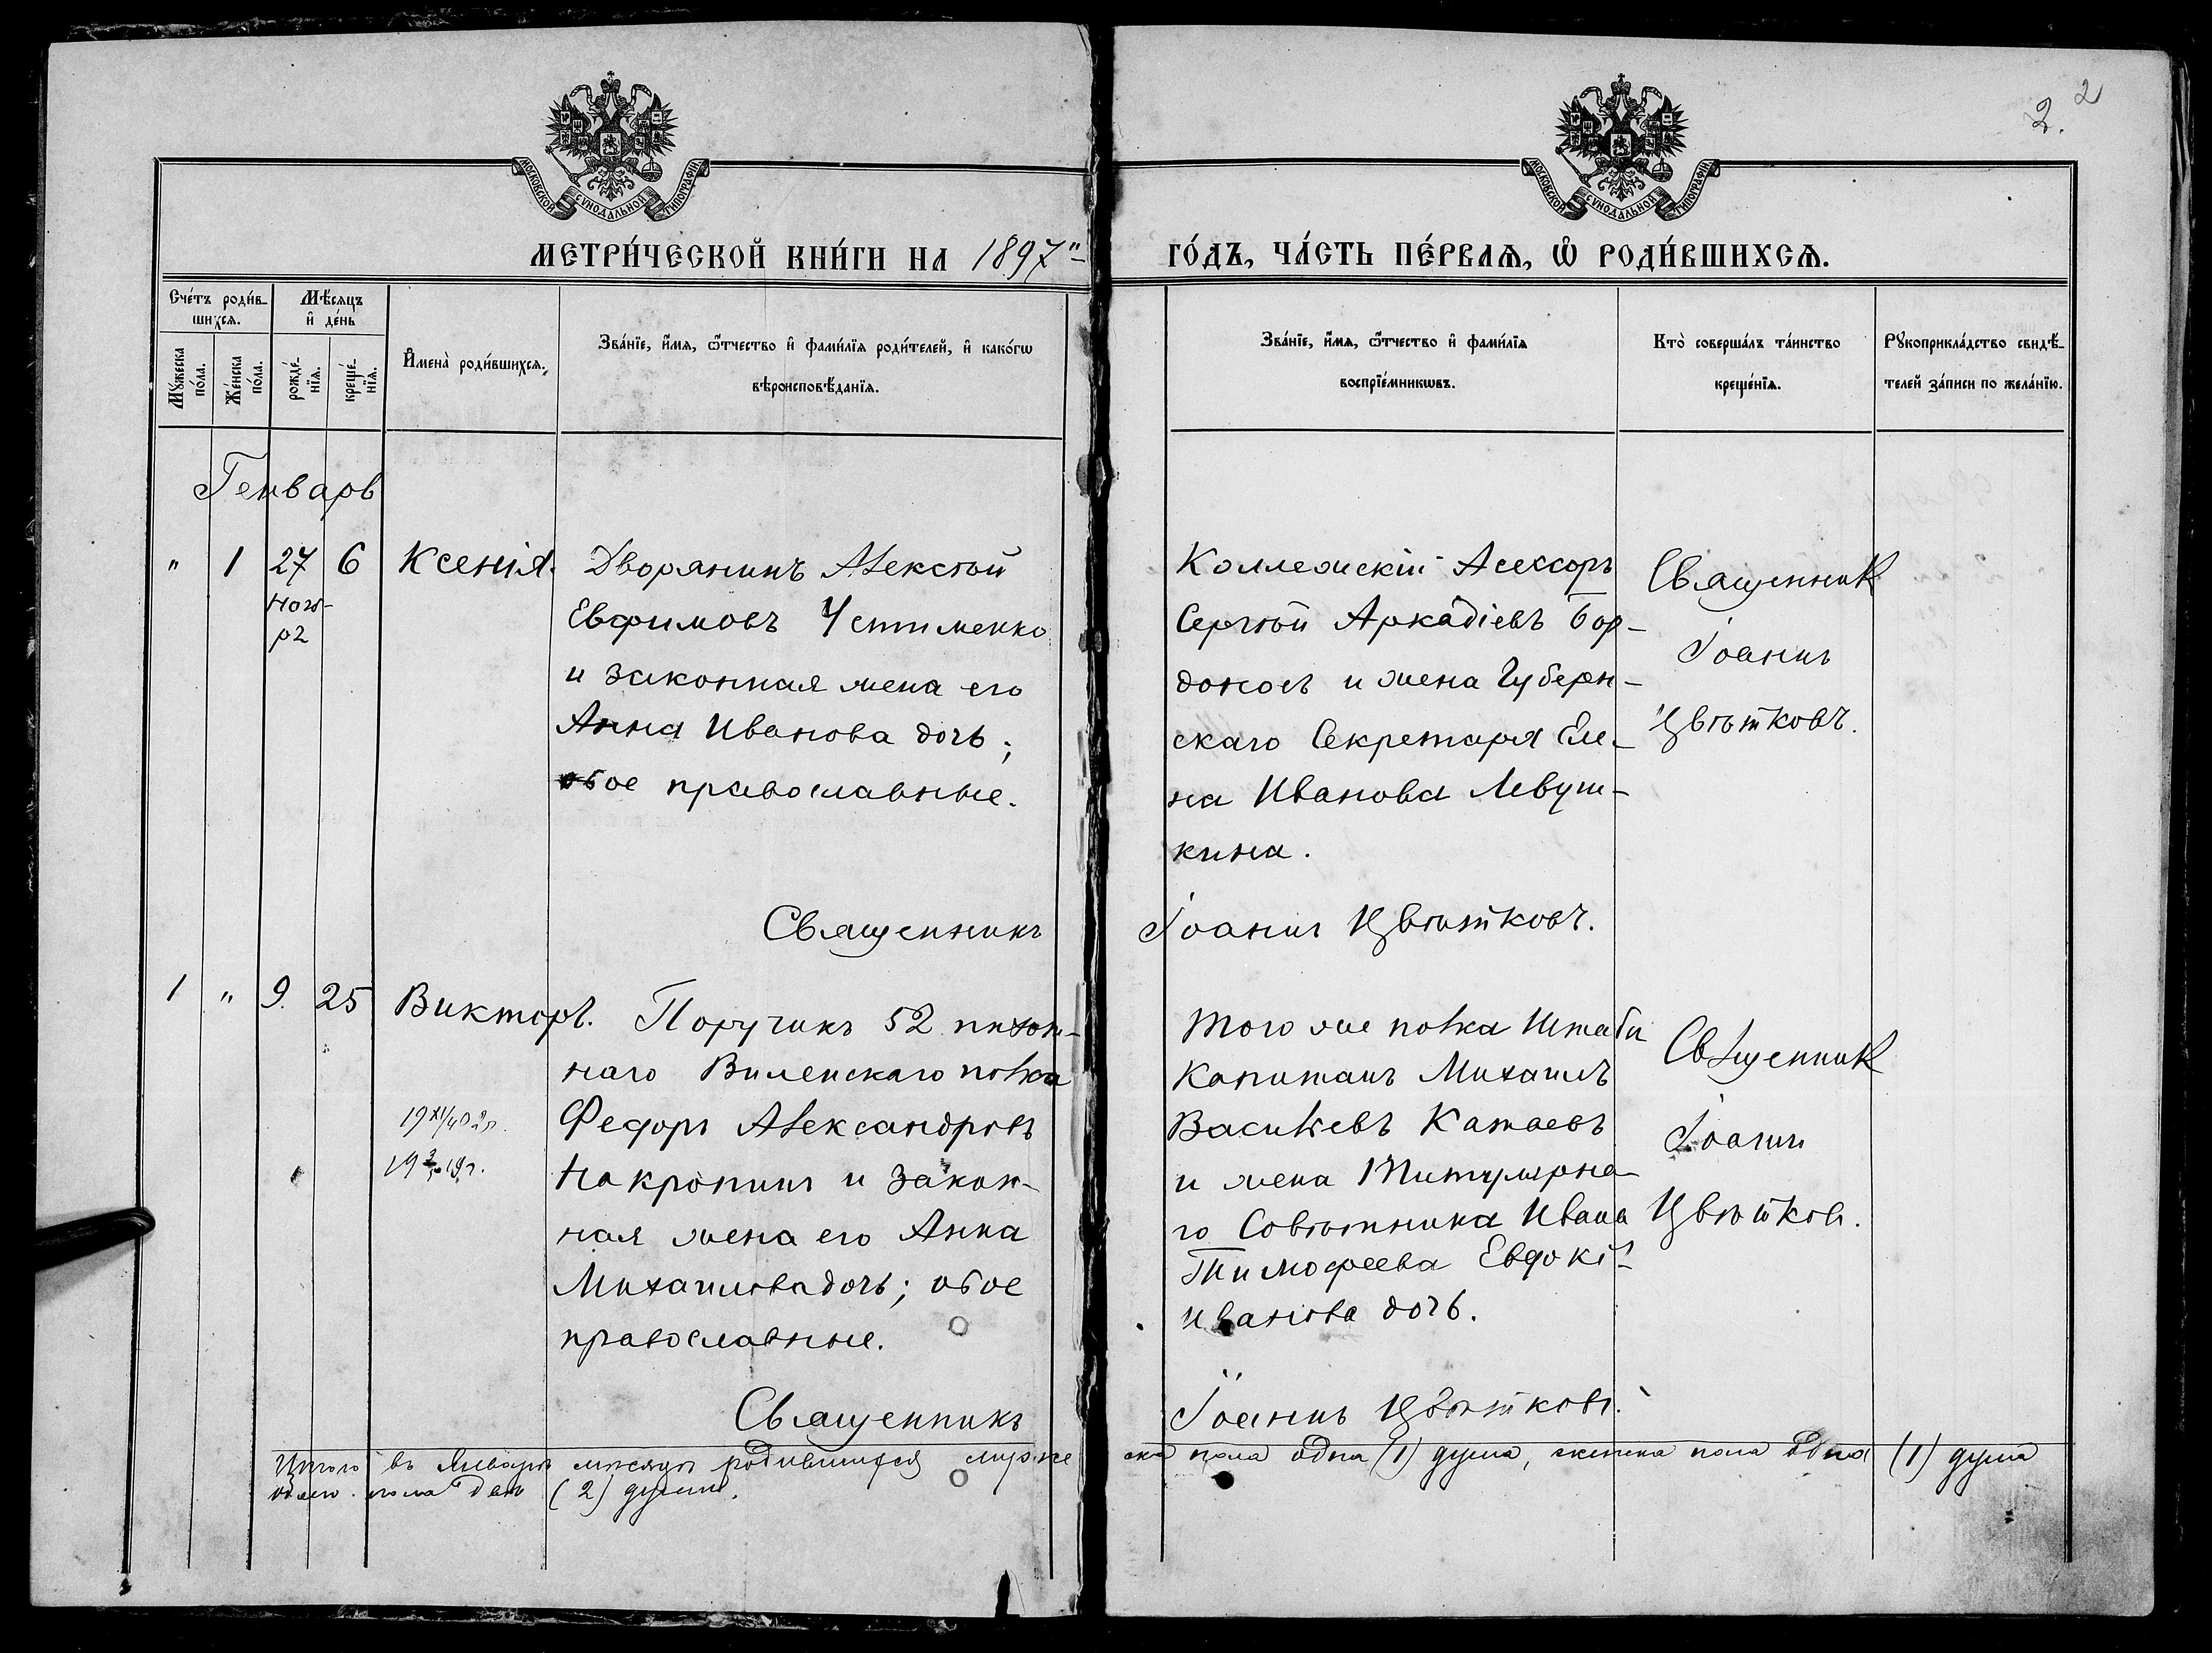 2. 2
МОСКОВСКОЙ СУНОДАЛЬНОЙ ТИПОГРАФІИ
МОСКОВСКОЙ СУНОДАЛЬНОЙ ТИПОГРАФІИ
МЕТРИ́ЧЕСКОЙ КНИ́ГИ НА 1897"
ГО́ДЪ, ЧА́СТЬ ПЕ́РВАѦ, Ѡ҆ РОДИ́ВШИХСѦ.
Сче́тъ роди́в-
шихсѧ.
Мѣ́сяцъ
и҆ де́нь
Мꙋ́жеска
по́ла.
Же́нска
по́ла.
рожде́-
нїѧ.
креще́-
нїѧ.
И҆мена̀ роди́вшихсѧ.
Зва́нїе, и҆́мѧ, ѻ҆́тчество и҆ фами́лїѧ роди́телей, и҆ како́гѡ
вѣроисповѣ́данїѧ.
Зва́нїе, и҆́мѧ, ѻ҆́тчество и҆ фами́лїѧ
воспрїе́мникѡвъ.
Кто̀ соверша́лъ та́инство
креще́нїѧ.
Рꙋкоприкла́дство свидѣ́-
телей за́писи по жела́нїю.
Генварь
" 1 27 6 Ксенія. Дворянинъ Алексѣй
Евфимовъ Устименко
и законная жена его
Анна Иванова дочь;
обое православные.
Коллежскій Асессоръ
Сергѣй Аркадіевъ Бор-
доносъ и жена Губерн-
скаго Секретаря Еле-
на Иванова Левуш-
кина.
Священник
Іоаннъ
Цвѣтковъ.
Священникъ Іоаннъ Цвѣтковъ.
1 " 9. 25 Викторъ. Поручикъ 52 пѣхот-
наго Виленскаго полка
Федоръ Александровъ
Накропинъ и закон-
ная жена его Анна
Михаилова дочь; обое
православные.
Того же полка Штабсъ
Капитанъ Михаилъ
Васильевъ Катаевъ
и жена Титулярна-
го Совѣтника Ивана
Тимофеева Евдокі-
Иванова дочь.
Священник
Іоаннъ
Цвѣтковъ.
Священникъ Іоаннъ Цвѣтковъ.
Итого въ Январѣ мѣсяцѣ родившихся муже ска пола одна (1) душа, женска пола одна (1) душа
обоего пола двѣ (2) души.